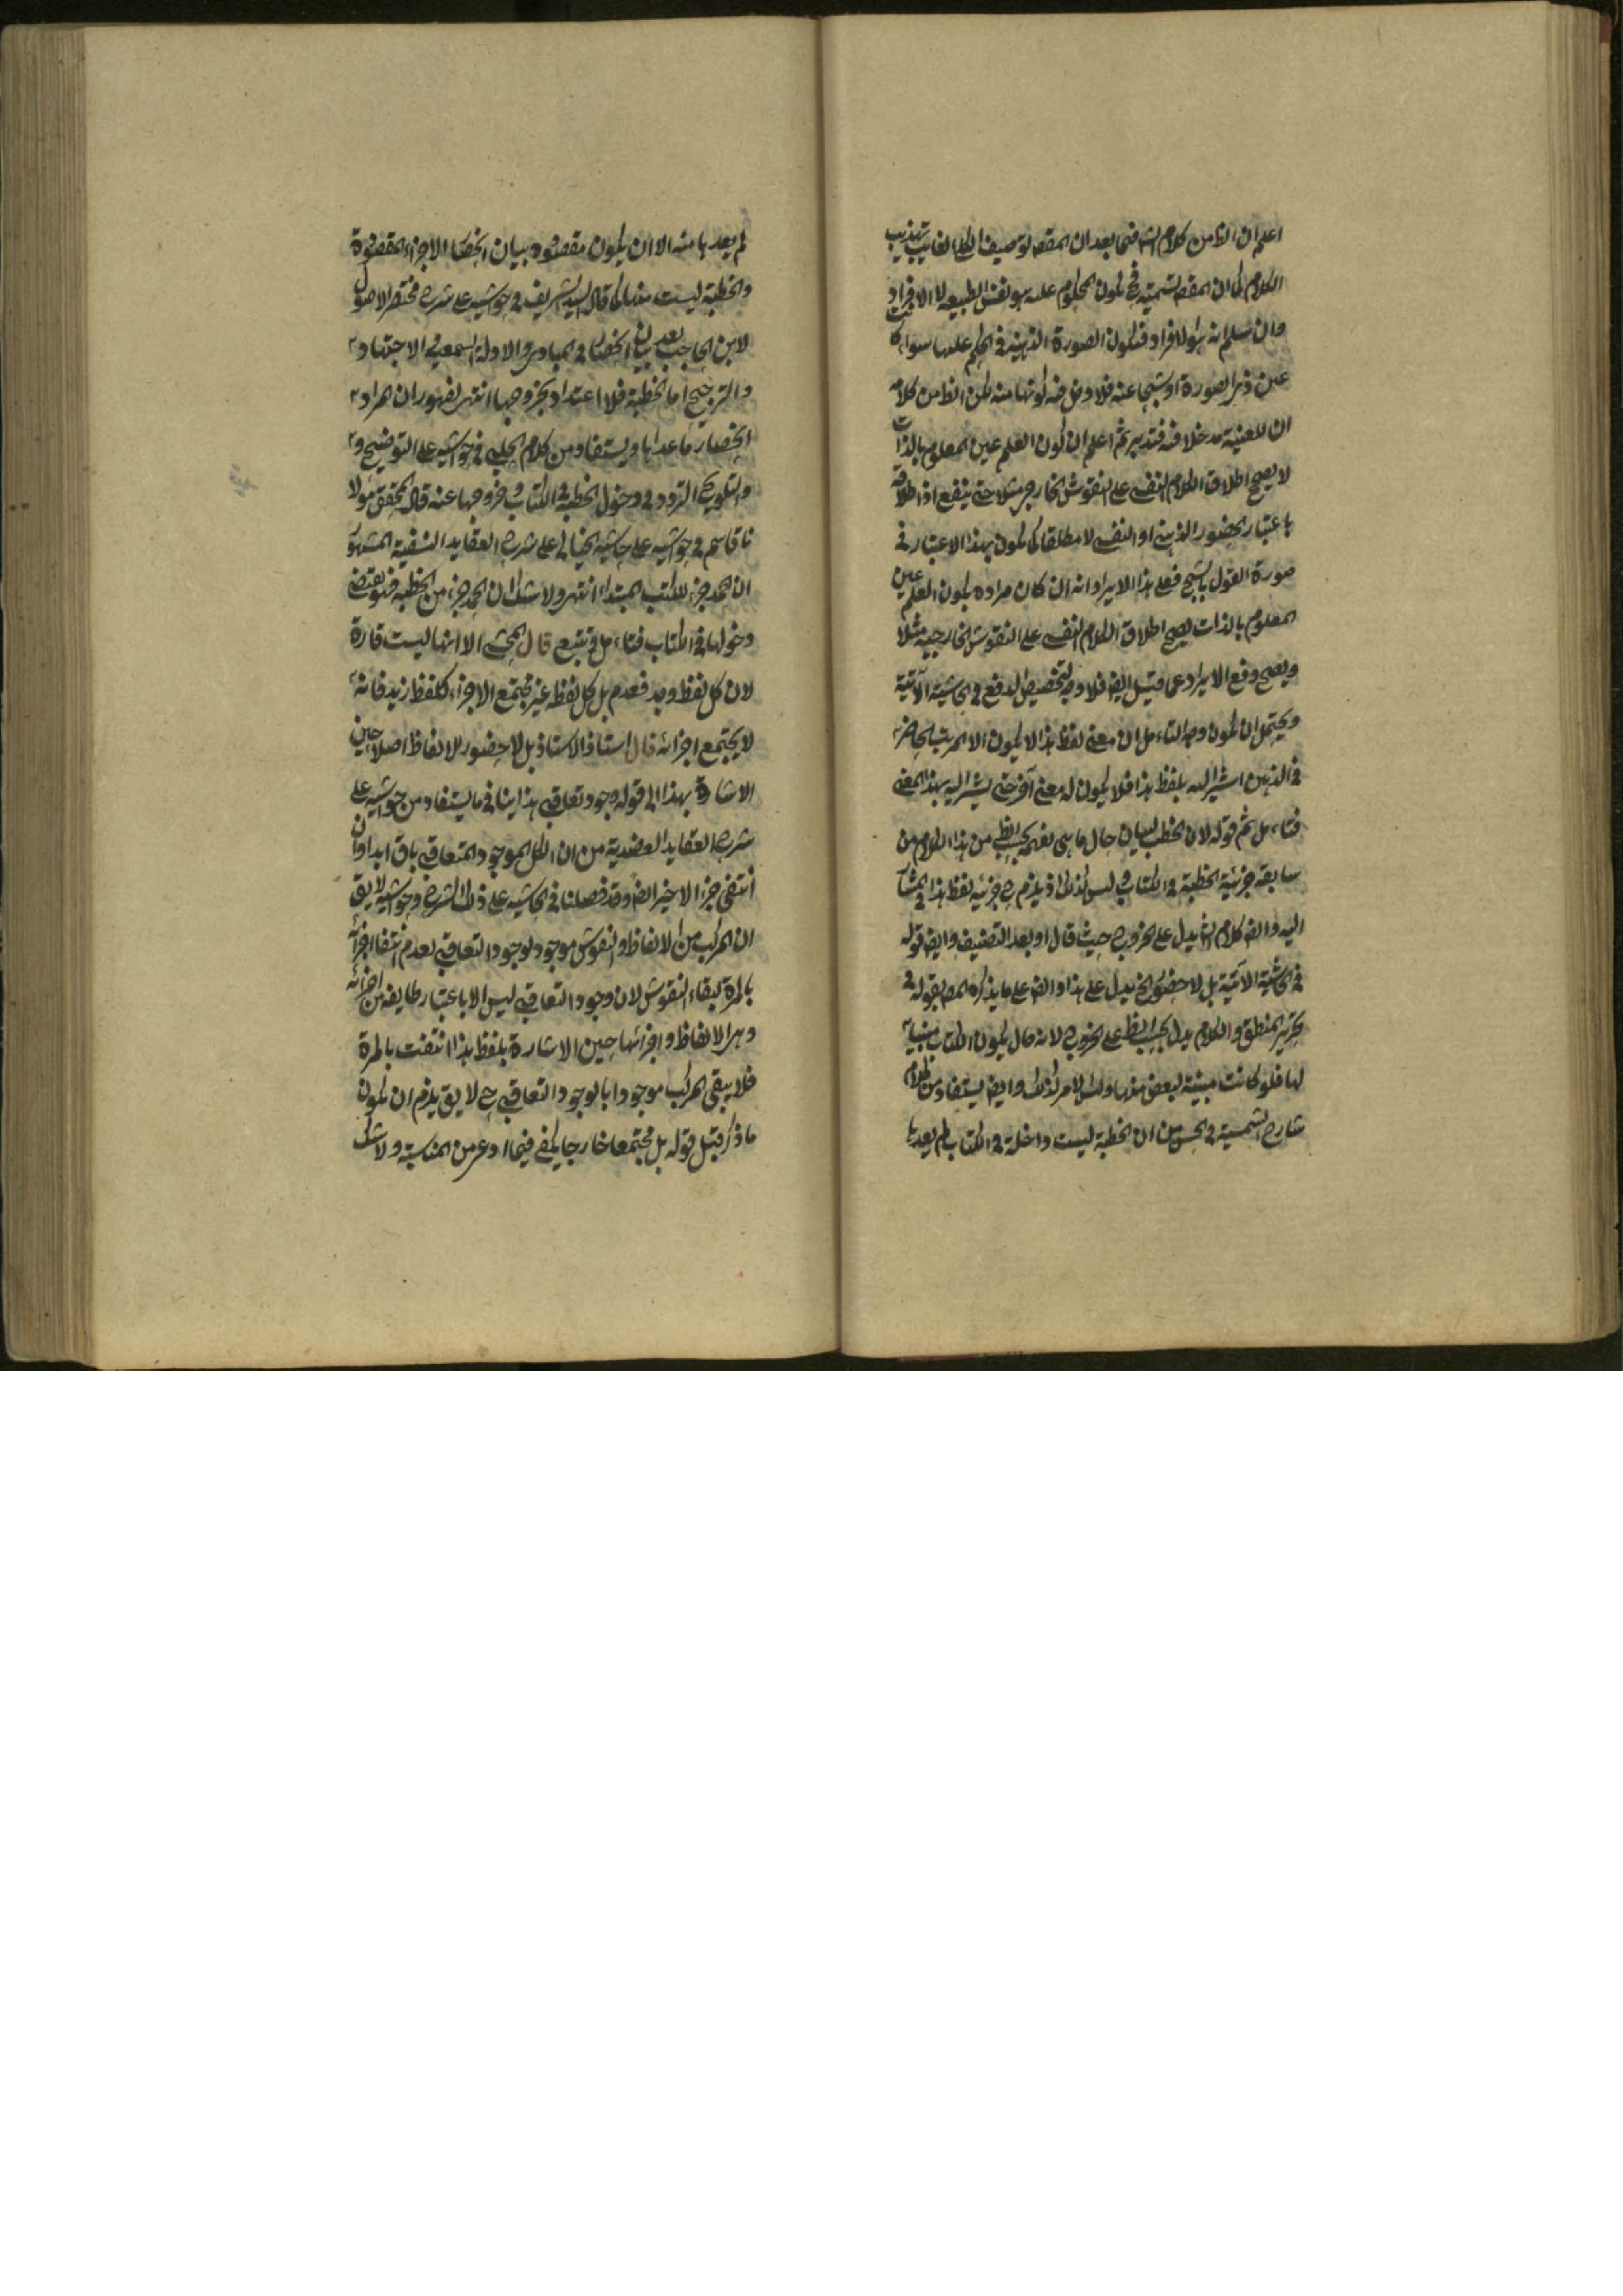 اعلم ان الظ من كلام الش فيما بعد ان المقصد توصيف الكلام الغايب بتهذيب
الكلام كما ان المقصد تسميته فح لكون المحكوم عليه هو نفس الطبيعه لا الافراد
وان سلم انه هو الافراد فتكون الصورة الذهنية في الحكم عليها سواء كانت
عين ذى الصورة او شبحا عنه فلا دخل فيه لكونها منه لكن الظ من كلامه
ان للعينية مدخلا فيه فتدبر ثم اعلم ان كون العلم عين المعلوم بالذات
لا يصح اطلاق الكلام النفسى على النقوش الخارجية مثلا حتى ينفع اذ اطلاقه
باعتبار الحضور الذهنى او النفسى لا مطلقا كما يكون بهذا الاعتبار فى
صورة القول بالشبح فعلى هذا الايراد انه ان كان مراده بكون العلم عين
المعلوم بالذات يصح اطلاق الكلام النفسى على النقوش الخارجية مثلا
ويصح دفع الايراد عما قبل ايضا فلا وجه لتخصيص الدفع فى الحاشية الآتية
ويحتمل ان يكون وجه التاءمل ان معنى لفظ هذا لا يكون الا المرتب الحاضر
فى الذهن اشير اليه بلفظ هذا فلا يكون له معنى آخر حتى يشير اليه بهذا المعنى
فتاءمل ثم قوله لان الخطب لبيان حال ما هى يفهم بحسب الظ من هذا الكلام من
سابقه جزئية الخطبة فى الكتاب وليس كذلك اذ يلزم ح جزئية لفظ هذا فى المشار
اليه وايضا كلام الش يدل على الخروج حيث قال او بعد التصنيف وايضا قوله
فى الحاشية الآتية بل لا حضور الخ يدل على هذا وايضا على ما يذكره المص بقوله فى
تحرير المنطق والكلام يدل بحسب الظ على الخروج لانه حال يكون الكتاب مبنيا
لها فلو كانت مبنية لبعض منها وليس الامر كذلك وايضا يستفاد من كلام
شارح الشمسية فى الحسن من ان الخطبة ليست داخلة فى الكتاب لم يعدها
لم يعدها منه الا ان يكون مقصوده بيان انحصار الاجزاء المقصودة
والخطبة ليست منها كما قال السيد الشريف فى حواشيه على شرح مختصر الاصول
لابن الحاجب بعد بيان انحصار فى المبادى والادلة السمعية والاجتهاد
والترجيح اما الخطبة فلا اعتداد بخروجها انتهى لظهور ان المراد
انحصار ما عداها ويستفاد من كلام الچلبى فى حواشيه على التوضيح و
والتلويح التردد فى دخول الخطبة فى الكتاب وخروجها عنه قال المحقق مولا
نا قاسم فى حواشيه على حاشيه الخيالى على شرح العقايد النسفية المشهور
ان الحمد جزء للكتب المبتداء انتهى ولا شك ان الحمد جزء من الخطبة فهو يقتضى
دخولها فى الكتاب فتاءمل وتتبع قال المحشى الا انها ليست قارة
لان كل لفظ وجد فعدم بل كل لفظ غير مجتمع الاجزاء كلفظ زيد فانه
لا يجتمع اجزائه قال استاذ الاستاذ بل لا حضور للالفاظ اصلا حين
الاشارة بهذا الى قوله وجود تعاقبى هذا ينافى ما يستفاد من حواشيه على
شرح العقايد العضدية من ان الكل الموجود المتعاقبى باق ابدا وان
انتفى جزء الاخير ايضا وقد فصلنا فى الحاشيه على ذلك الشرح وحواشيه لا يق
ان المركب من الالفاظ والنقوش موجود لوجود التعاقبى لعدم انتفاء اجزائه
بالمرة لبقاء النقوش لان وجود التعاقبى ليس الا باعتبار طايفة من اجزائه
وهى الالفاظ واجزائها حين الاشارة بلفظ هذا انتفت بالمرة
فلا يبقى المركب موجودا بالوجود التعاقبى ح لا يق يلزم ان يكون
ما ذكر قبل قوله بل مجتمعا خارجا يكفى فيما ادعى من المناسبة ولا شك